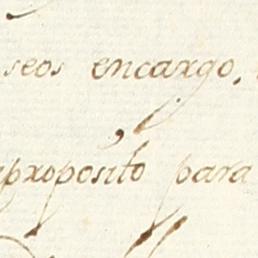 seos encargo,
aproposito para